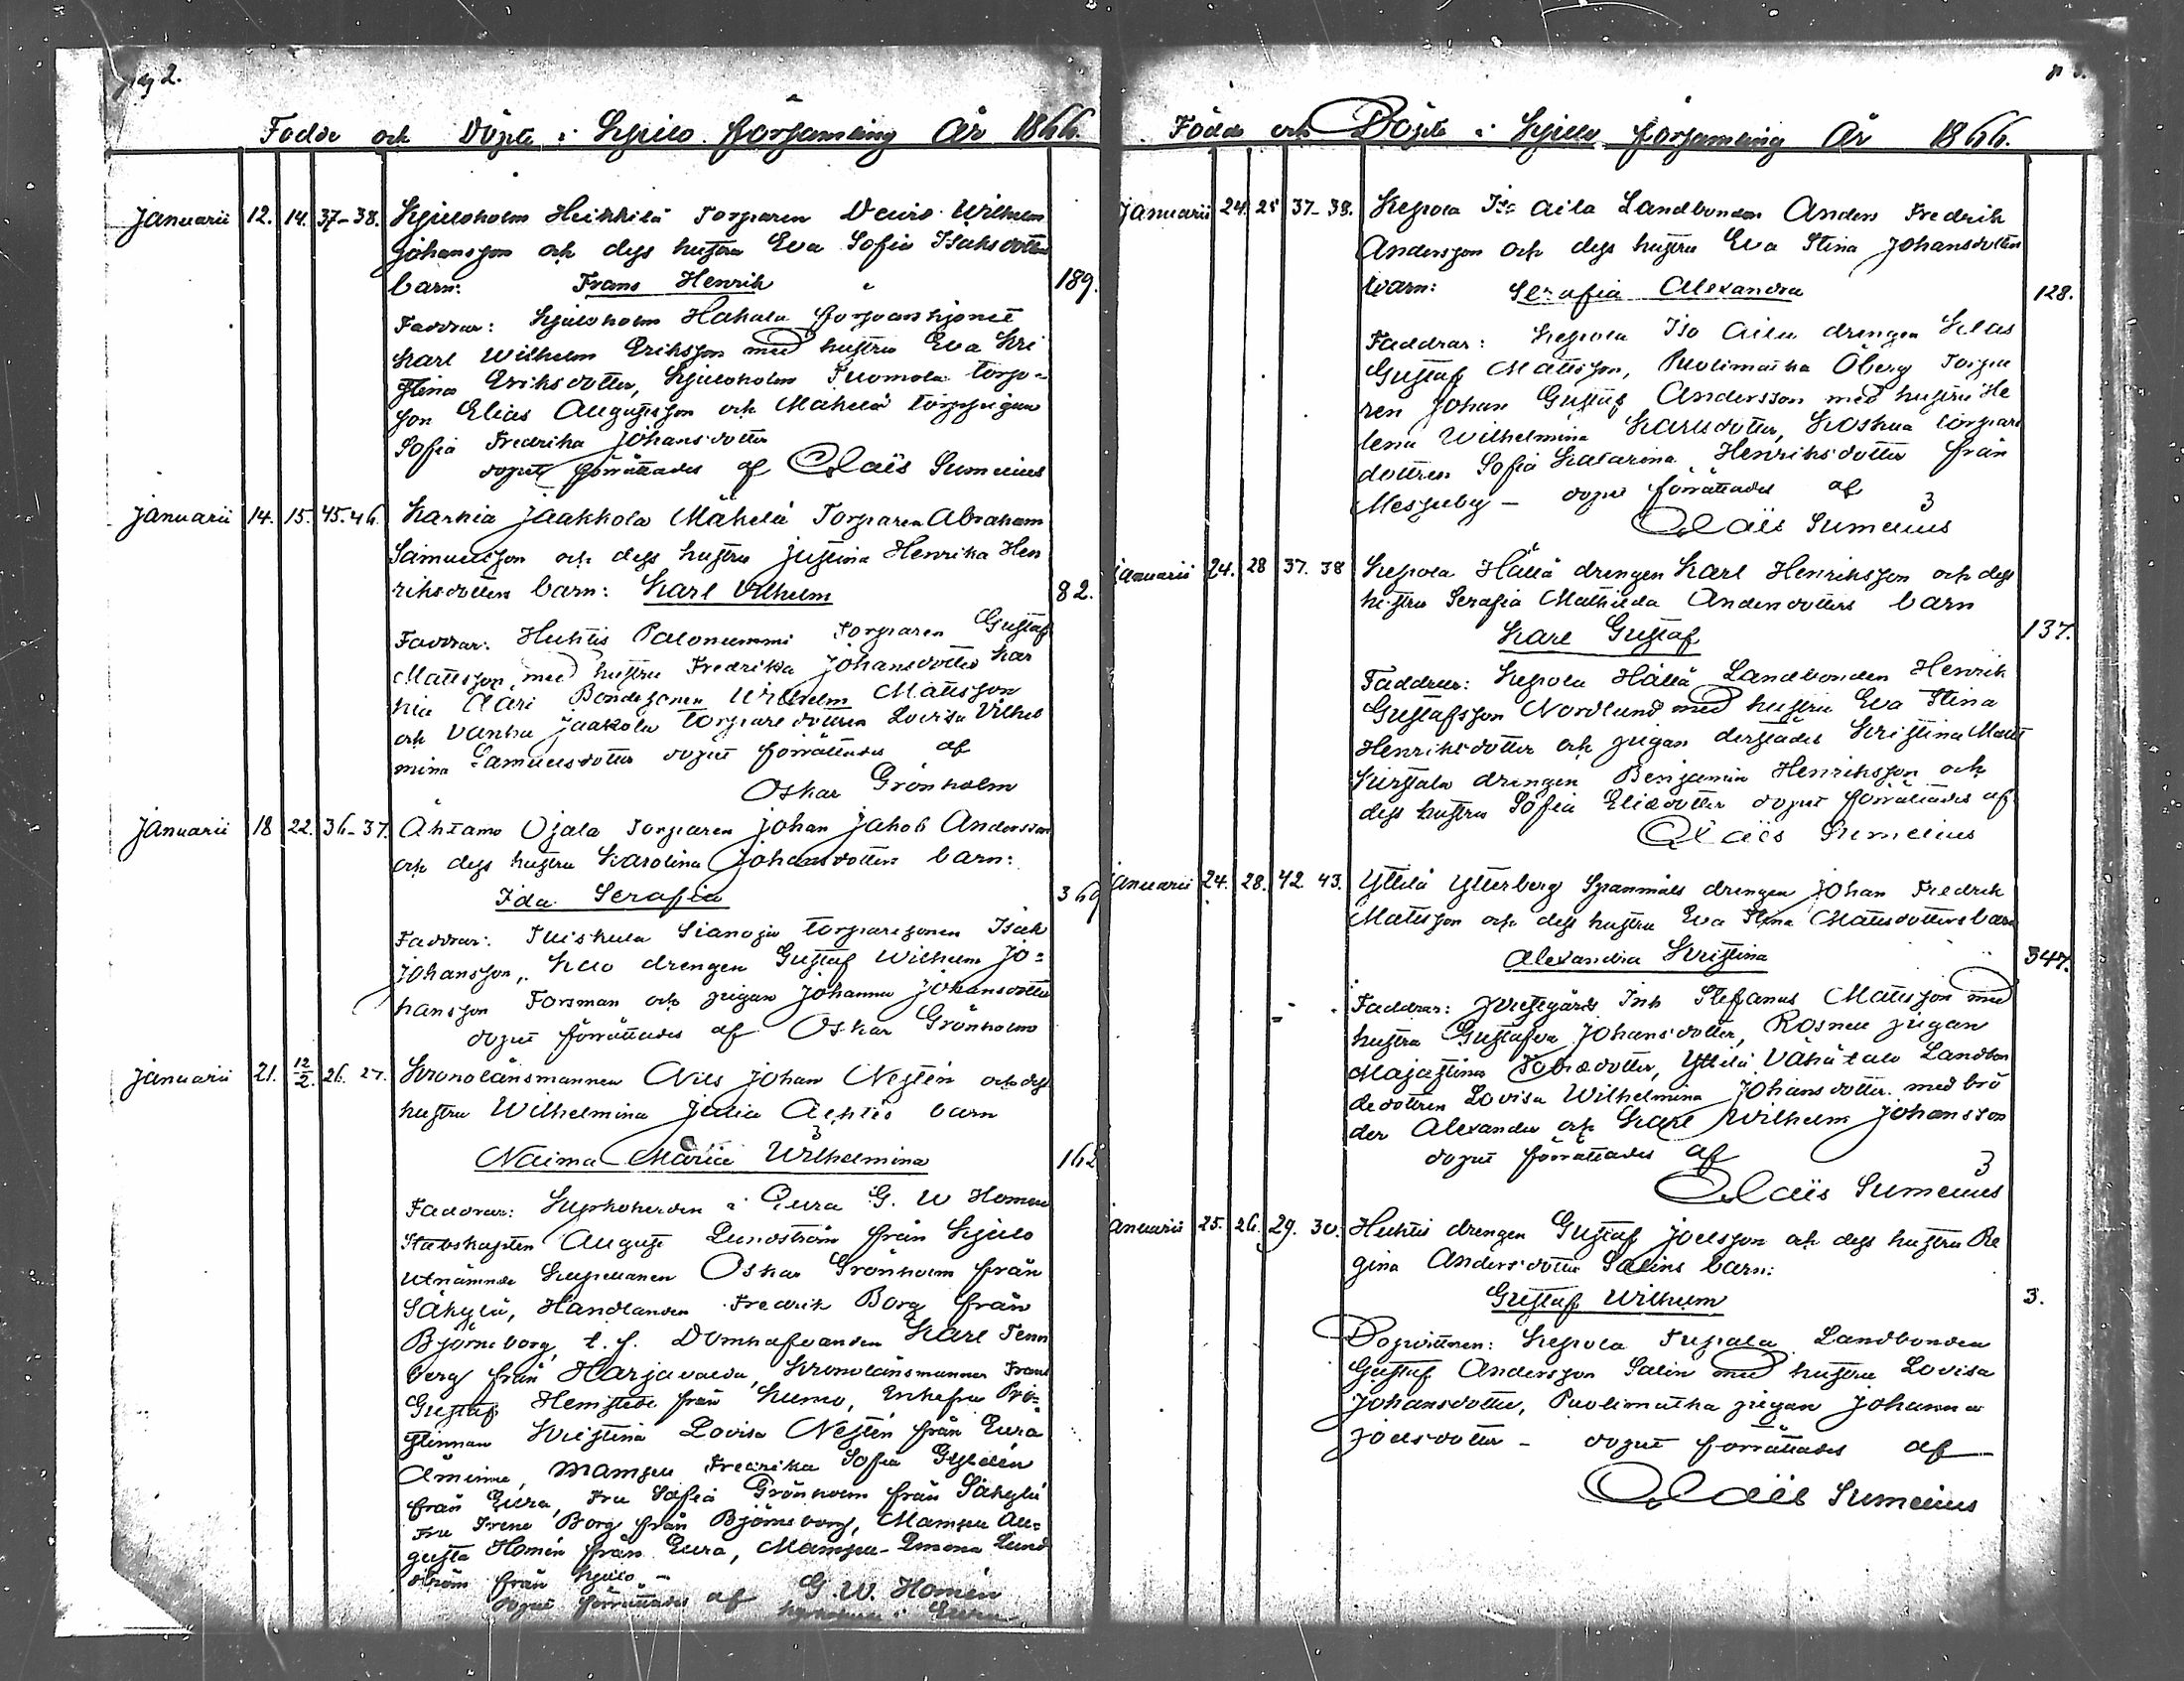 pag 2.
Födde och Döpte i Kjulo församling År 1866.
Januarii 12. 14. 37-38. Kjuloholm Heikkilä Torparen David Wilhelm
Johansson och dess hustru Eva Sofia Isaksdotters
barn: Frans Henrik 189.
Faddrar: Kjuloholm Hakala
Karl Wilhelm Eriksson med hustru Eva Kri
stina Eriksdotter, Kjuloholm Tuomola torpa-
son Elias Augustsson och Mäkelä torppigan
Sofia Fredrika Johansdotter
dopet förrättades af Claës Sumelius
Januarii 14. 15. 45.46. Karhia Jaakkola Mäkelä Torparen Abraham
Samuelsson och dess hustru Justina Henrika Hen
riksdotters barn: Karl Vilhelm 82.
Faddrar: Huhtis Palonummi Torparen Gustaf
Mattsson med hustru Fredrika Johansdotter Kar
hia Bondesonen Wilhelm Mattsson
och Vanha Jaakola torparedottren Lovisa Vilhel
mina Samuelsdotter dopet förrättades af
Oskar Grönholm
Januarii 18 22. 36-37. Ähtamo Ojala Torparen Johan Jakob Andersson
och dess hustru Karolina Johansdotters barn:
Ida Serafia 369
Faddrar: Tuiskula Sianoja torparesonen Isak
Johansson, drengen Gustaf Wilhelm Jo=
hansson Forsman och pigan Johanna Johansdotter
dopet förrättades af Oskar Grönholm
Januarii 21. 12/2. 26. 27. Kronolänsmannen Nils Johan Nestén och dess
hustru Wilhelmina Julia barn
Naima Maria Wilhelmina 162
Faddrar: Kyrkoherden i Eura G. W Homen
Stabskapten August Lundström från Kjulo
utnämnde Kapellanen Oskar Grönholm från
Säkylä, Handlanden Fredrik Borg från
Björneborg, t. f. Domhafvanden Karl Tenn
berg från Harjavalda, Kronolänsmannen Frans
Gustaf från Kumo, Enkefru Pro=
stinnan Kristina Lovisa Nestén från Eura
Åminne, Mamsell Fredrika Sofia Gyldén
från Eura, Fru Sofia Grönholm från Säkylä
Fru Irene Borg från Björneborg, Mamsell Au=
gusta Homén från Eura, Mamsell Emma Lund
ström från Kjulo -
dopet förrättades af G. W. Homén
kyrkoherde i Eura
Födde och Döpte i Kjulo församling År 1866.
Januarii 24. 25 37-38. Kepola Iso Aila Landbonden Anders Fredrik
Andersson och dess hustru Eva Stina Johansdotters
barn: Serafia Alexandra 128.
Faddrar: Kepola Iso Aila drengen Klas
Gustaf Mattsson, Puolimatka Öberg Torpa
ren Johan Gustaf Andersson med hustru He
lena Wilhelmina Karlsdotter, Koskua torpare
dottren Sofia Katarina Henriksdotter från
Messuby - dopet förrättades af
Claës Sumelius
Januarii 24. 28 37. 38 Kepola Hällä drengen Karl Henriksson och dess
hustru Serafia Mathilda Andersdotters barn
Karl Gustaf 137.
Faddrar: Kepola Hällä Landbonden Henrik
Gustafsson Nordlund med hustru Eva Stina
Henriksdotter och pigan derstädes Kristina Matts
drengen Benjamin Henriksson och
dess hustru Sofia Eliedotter dopet förrättades af
Claës Sumelius
Januarii 24. 28. 42. 43. Yttilä Ytterberg Spanmåls drengen Johan Fredrik
Mattsson och dess hustru Eva Stina Mattsdotters barn
Alexandra Kristina 347.
Faddrar: Prestgårds Inh Stefanus Mattsson med
hustru Gustafva Johansdotter, Rosnell pigan
Majastina Tobiedotter, Yttilä Vähätalo Landbon
dedottren Lovisa Wilhelmina Johansdotter med brö
der Alexander och Karl Wilhelm Johansson
dopet förrättades af
Claës Sumelius
Januarii 25. 26. 29. 30. Huhtis drengen Gustaf Joelsson och dess hustru Re
gina Andersdotter Salins barn:
Gustaf Wilhelm 3.
Dopvittnen: Kepola Tupala Landbonden
Gustaf Andersson Salin med hustru Lovisa
Johansdotter, Puolimatka pigan Johanna
Joelsdotter - dopet förrättades af
Claës Sumelius